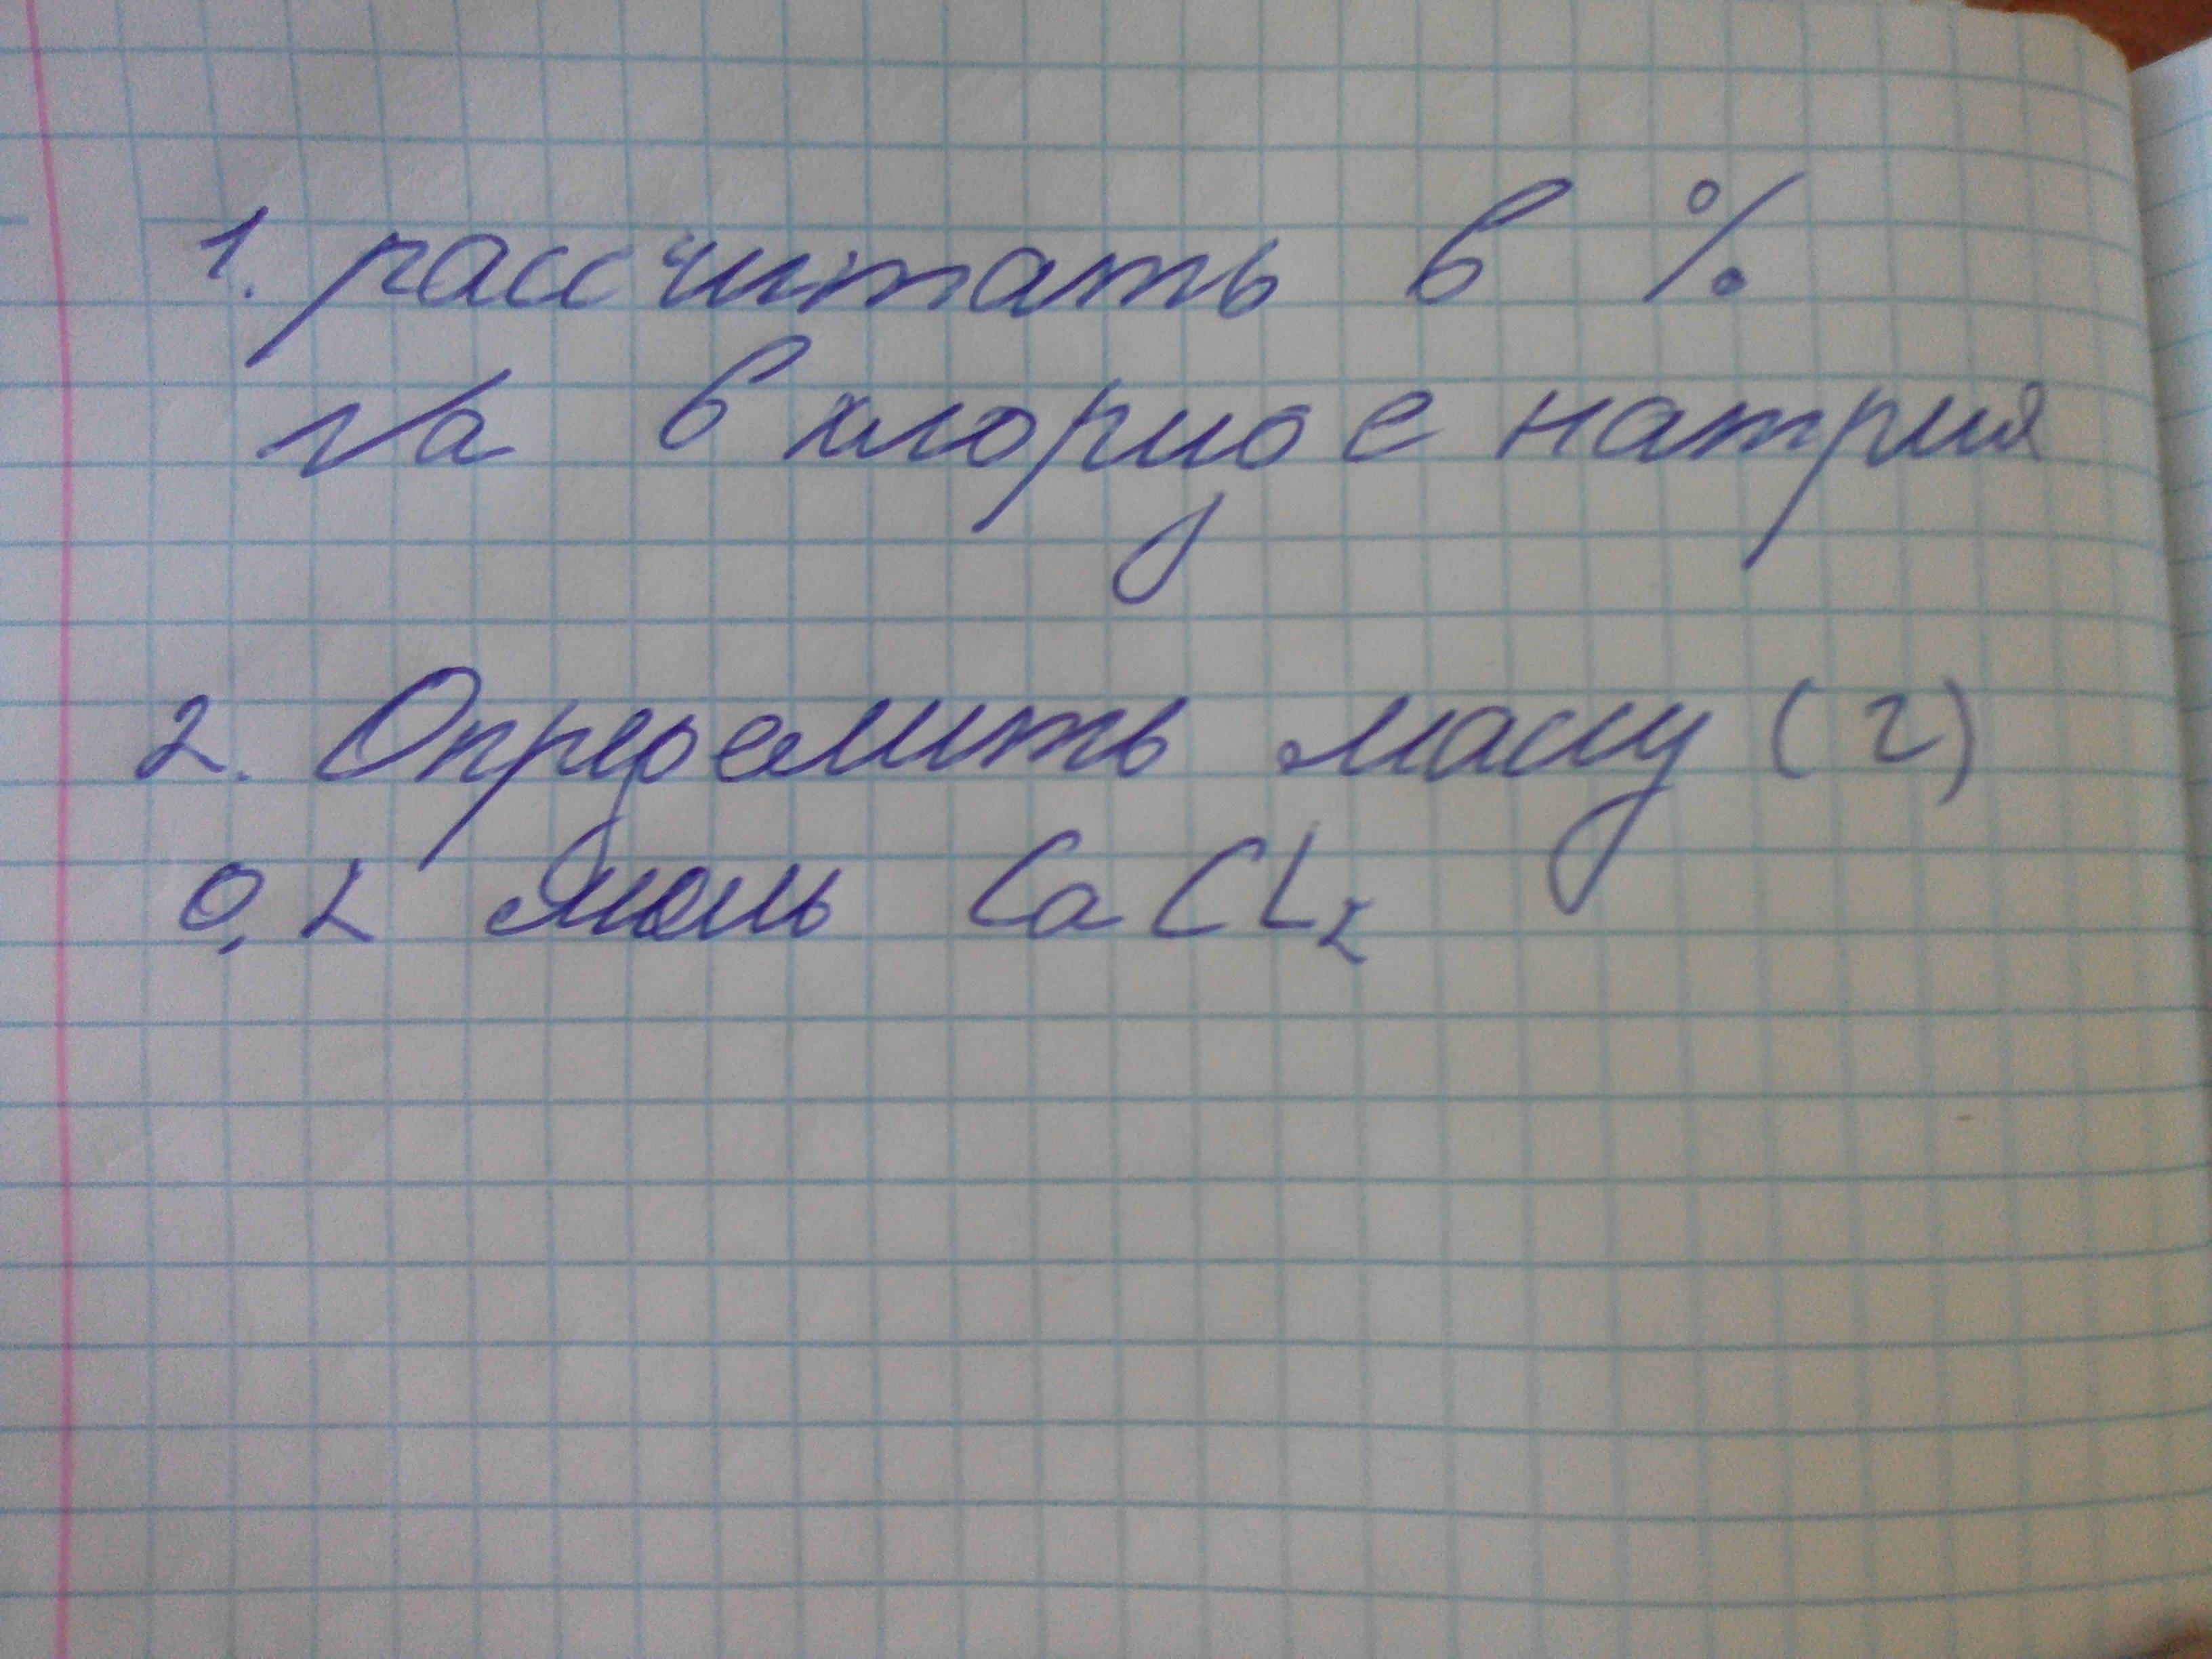 1. рассчитать в %
Na в хлориде натрия
2. Определить массу (г)
0,2 моль CaCL₂